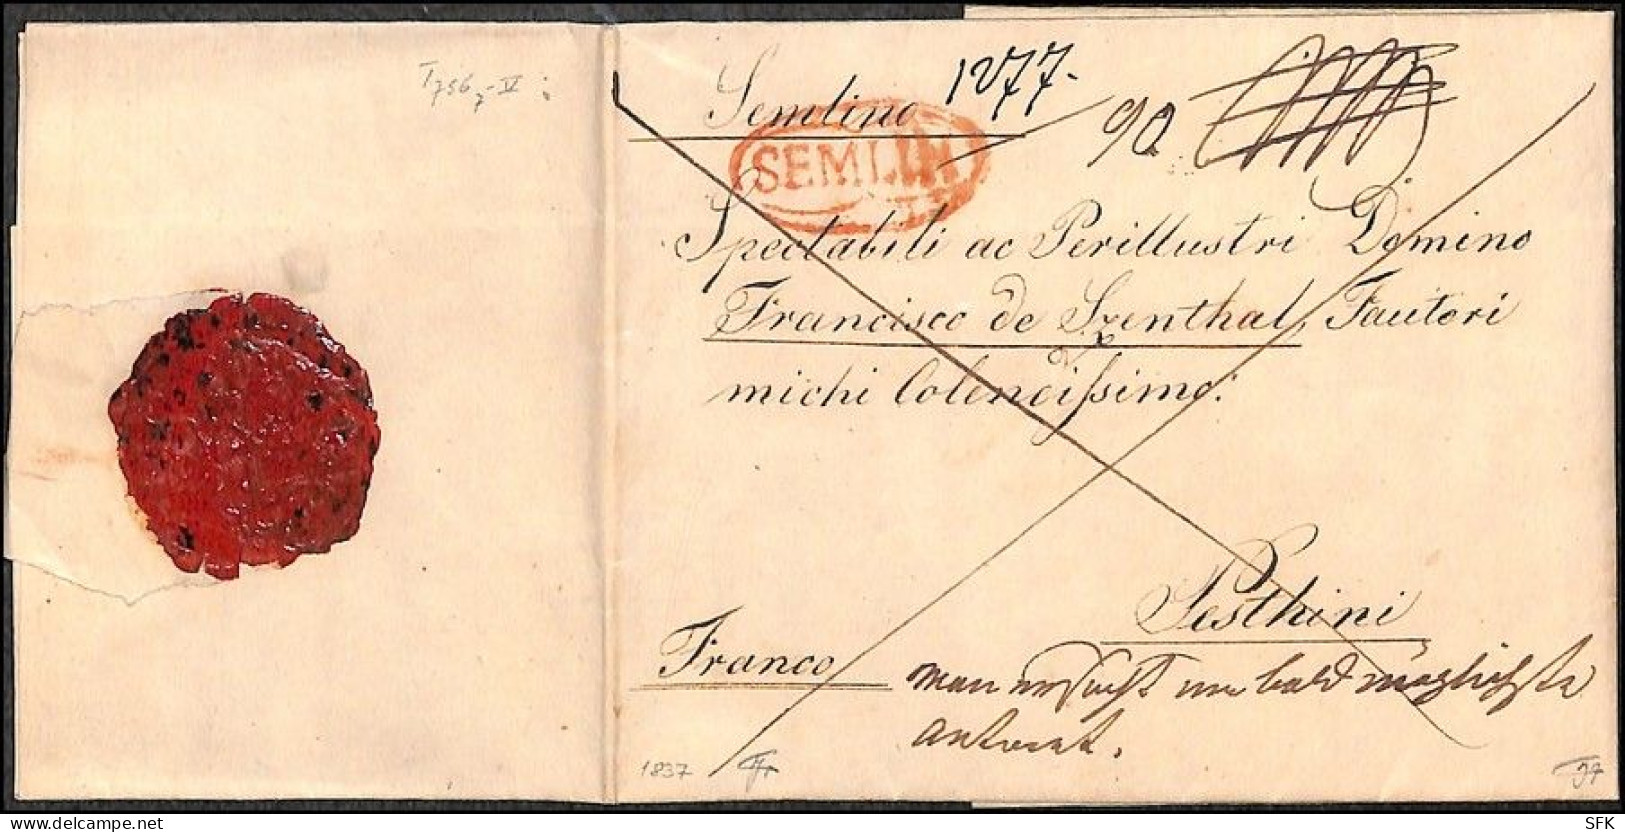 1277.
Semlino
90
SEMLIN
Spectabili ac Perillustri Domino
Francisco de Szenthal, Fautori
michi Colendissimo:
Pesthini
Franco
man ersucht um baldmöglichste
antwort.
1837
delcampe.net
SFK